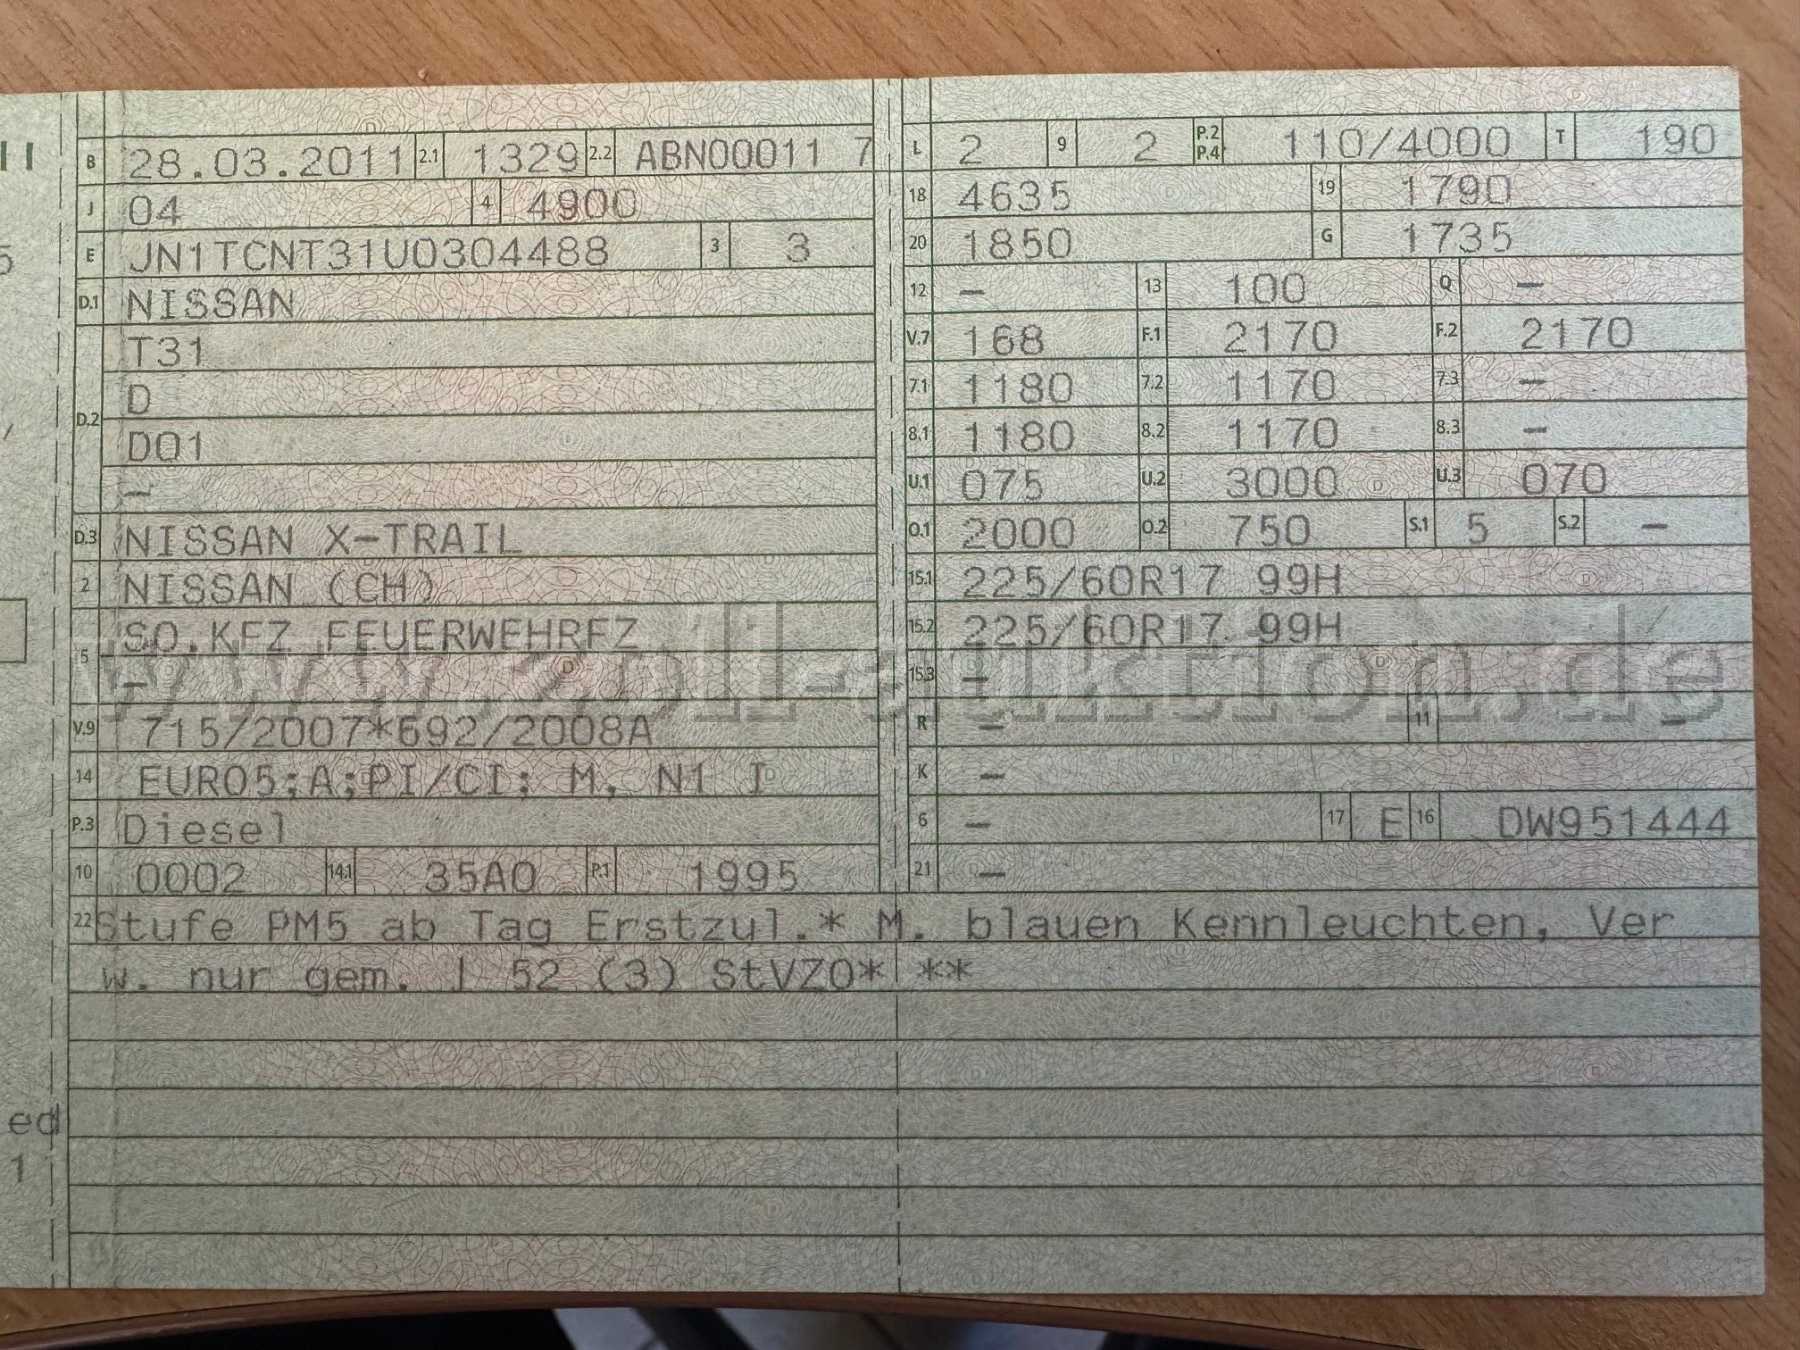 II
B 28.03.2011 2.1 1329 2.2 ABN00011 7
J 04 4 4900
E JN1TCNT31U0304488 3 3
D.1 NISSAN
T31
D
D.2
D01
–
D.3 NISSAN X-TRAIL
2 NISSAN (CH)
SO.KFZ FEUERWEHRFZ
5
–
V.9 715/2007*692/2008A
14 EURO5;A;PI/CI; M, N1 I
P.3 Diesel
10 0002 14.1 35A0 P.1 1995
L 2 9 2 P.2 P.4 110/4000 T 190
18 4635 19 1790
20 1850 G 1735
12 – 13 100 Q –
V.7 168 F.1 2170 F.2 2170
7.1 1180 7.2 1170 7.3 –
8.1 1180 8.2 1170 8.3 –
U.1 075 U.2 3000 U.3 070
O.1 2000 O.2 750 S.1 5 S.2 –
15.1 225/60R17 99H
15.2 225/60R17 99H
15.3 –
R – 11 –
K –
6 – 17 E 16 DW951444
21 –
22 Stufe PM5 ab Tag Erstzul.* M. blauen Kennleuchten, Ver
w. nur gem. 52 (3) StVZO* **
ed
1
5
www.zoll-auktion.de